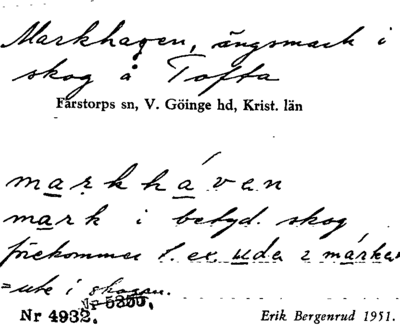 Markhagen, ängsmark i
skog å Tofta
Färstorps sn, V. Göinge hd, Krist. län
markháven
mark i betyd. skog
förekommer t. ex. uda i márken
= ute i skogen.
Nr 5350.
Nr 4932.
Erik Bergenrud 1951.